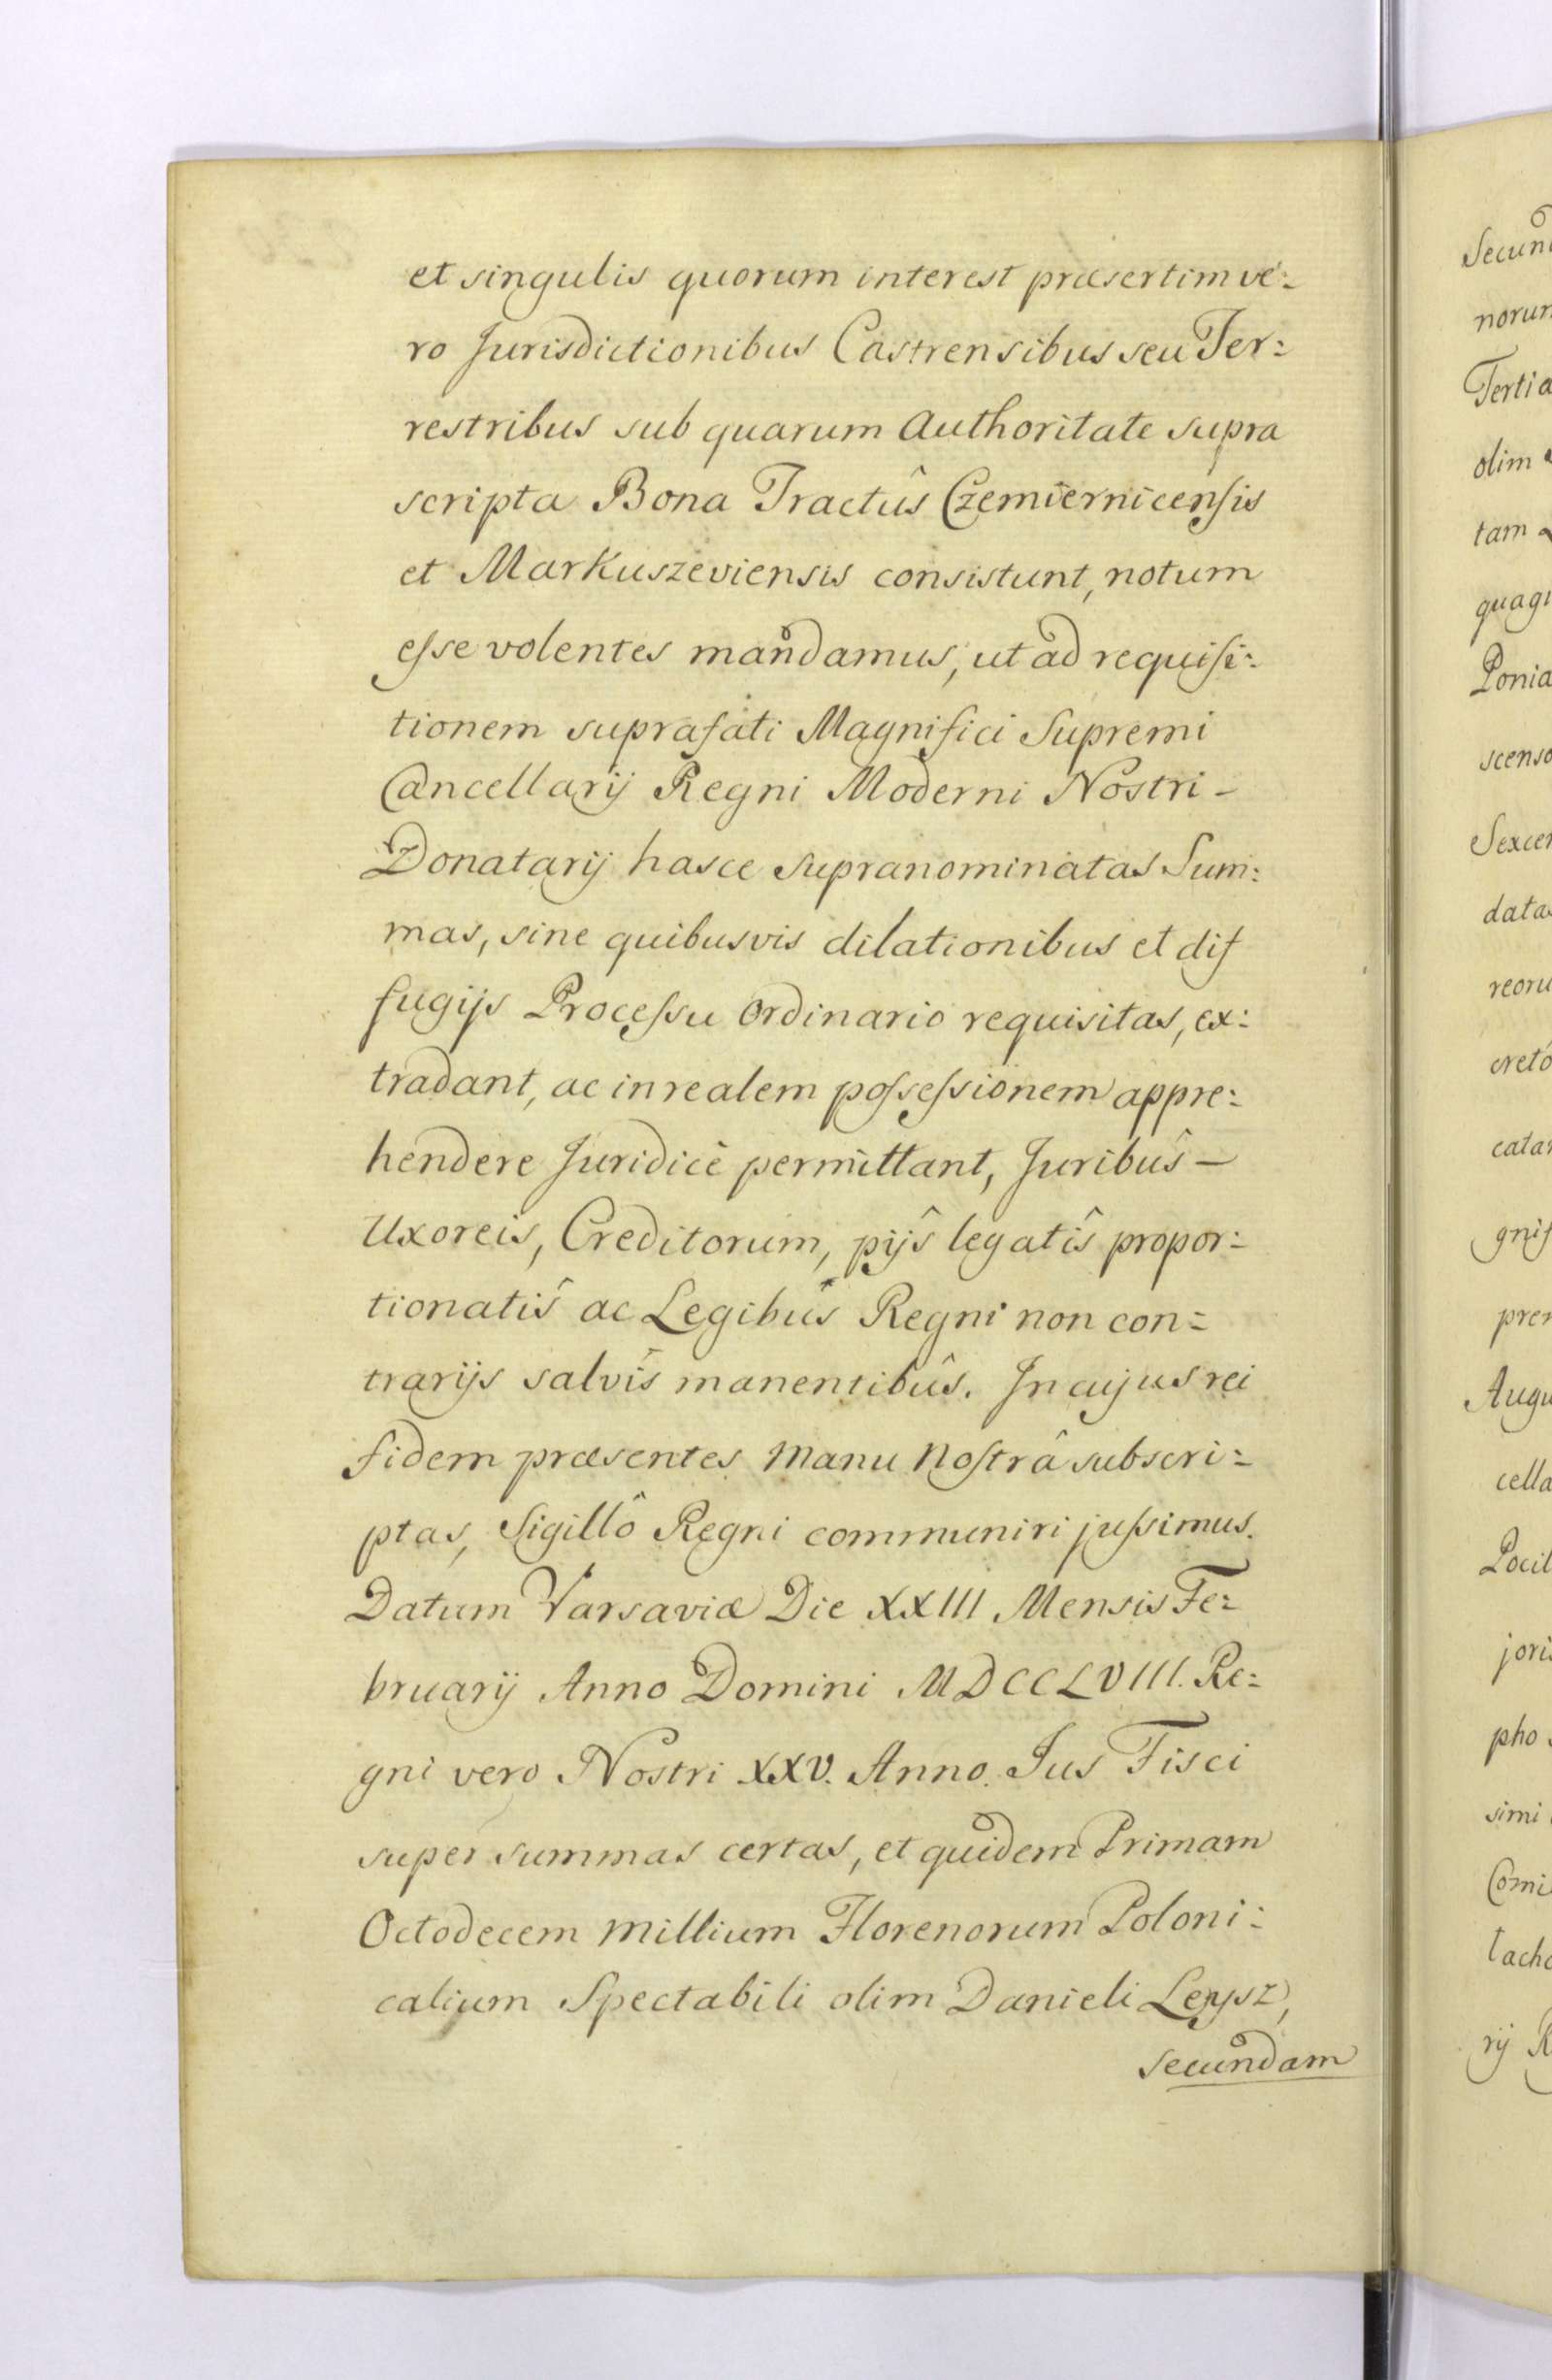 et singulis quorum interest præsertim ve:
ro Jurisdictionibus Castrensibus seu Ter:
restribus sub quarum Authoritate supra
scripta Bona Tractûs Czemiernicensis
et Markuszeviensis consistunt, notum
esse volentes mandamus, ut ad requisi:
tionem suprafati Magnifici Supremi
Cancellarij Regni Moderni Nostri -
Donatarij hasce supranominatas Sum:
mas, sine quibusvis dilationibus et dif
fugijs Processu Ordinario requisitas, ex:
tradant, ac in realem possessionem appre:
hendere Juridicè permittant, Juribûs -
Uxoreis, Creditorum, pijŝ legatîs propor:
tionatîs ac Legibûs Regni non con:
trarijs salvîs manentibûs. In cujus rei
fidem præsentes Manu Nostrâ subscri:
ptas, Sigillô Regni communiri jussimus.
Datum Varsaviæ Die XXIII Mensis Fe:
bruarij Anno Domini MDCCLVIII. Re:
gni vero Nostri XXV. Anno. Jus Fisci
super summas certas, et quidem Primam
Octodecem Millium Florenorum Poloni:
calium Spectabili olim Danieli Leysz,
secundam
Secun
norum
Tertia
olim
tam
quagi
Ponia
scenso
Sexcen
datas
reoru
cretô
catar
gnif
prem
Augu
cella
Pocil
joris
pho
simi
Comi
tacho
rij R